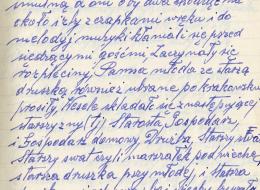 smutną a oni oby dwa
około niej z czapkami w ręku i do
melodyj muzyki kłaniali się przed
siedzącymi gośćmi. Zaczynały się
rozpleciny. Panna młoda ze starszą
drużką również ubrane po krakowsku
prosiły. Wesele składało się z następującej
starszyzny (tj) Starosta, Gospodarz
i Gospodarz domowy, Drużba, Starszy swat
Starszy swat czyli marszałek pod niechce,
starsza drużka przy młodej, i starsza